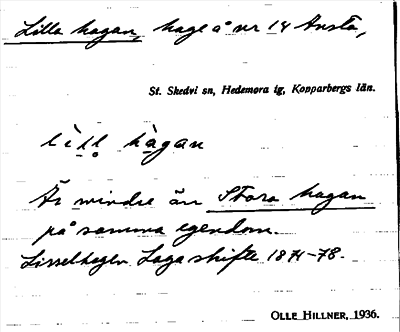 Lilla hagan, hage å nr 14 Ansta,
St. Skedvi sn, Hedemora tg, Kopparbergs län.
lìll hàgan
Är mindre än Stora hagan
på samma egendom.
Lisselhagen Laga skifte 1871-78.
OLLE HILLNER, 1936.